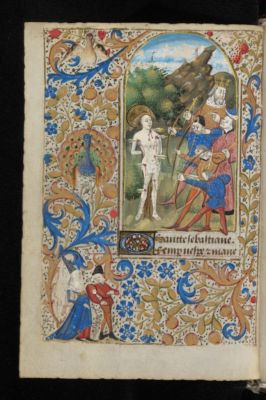 Sancte sebastiane.
semp vespe z mane